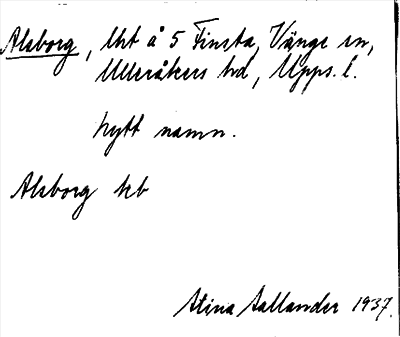 Alsborg, lht å 5 Finsta, Vänge sn,
Ulleråkers hd, Upps. l.
Nytt namn.
Alsborg kb
Stina Sallander 1937.